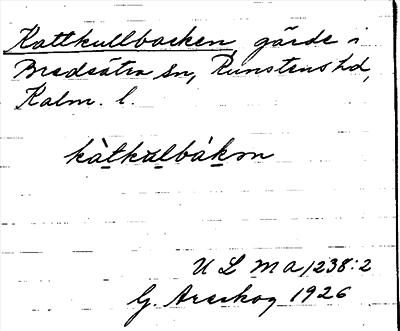 Kattkullbacken, gärde i
Bredsätra sn, Runstens hd,
Kalm. l.
kàtkulbákɐn
U L M A 1238:2
G. Areskog 1926